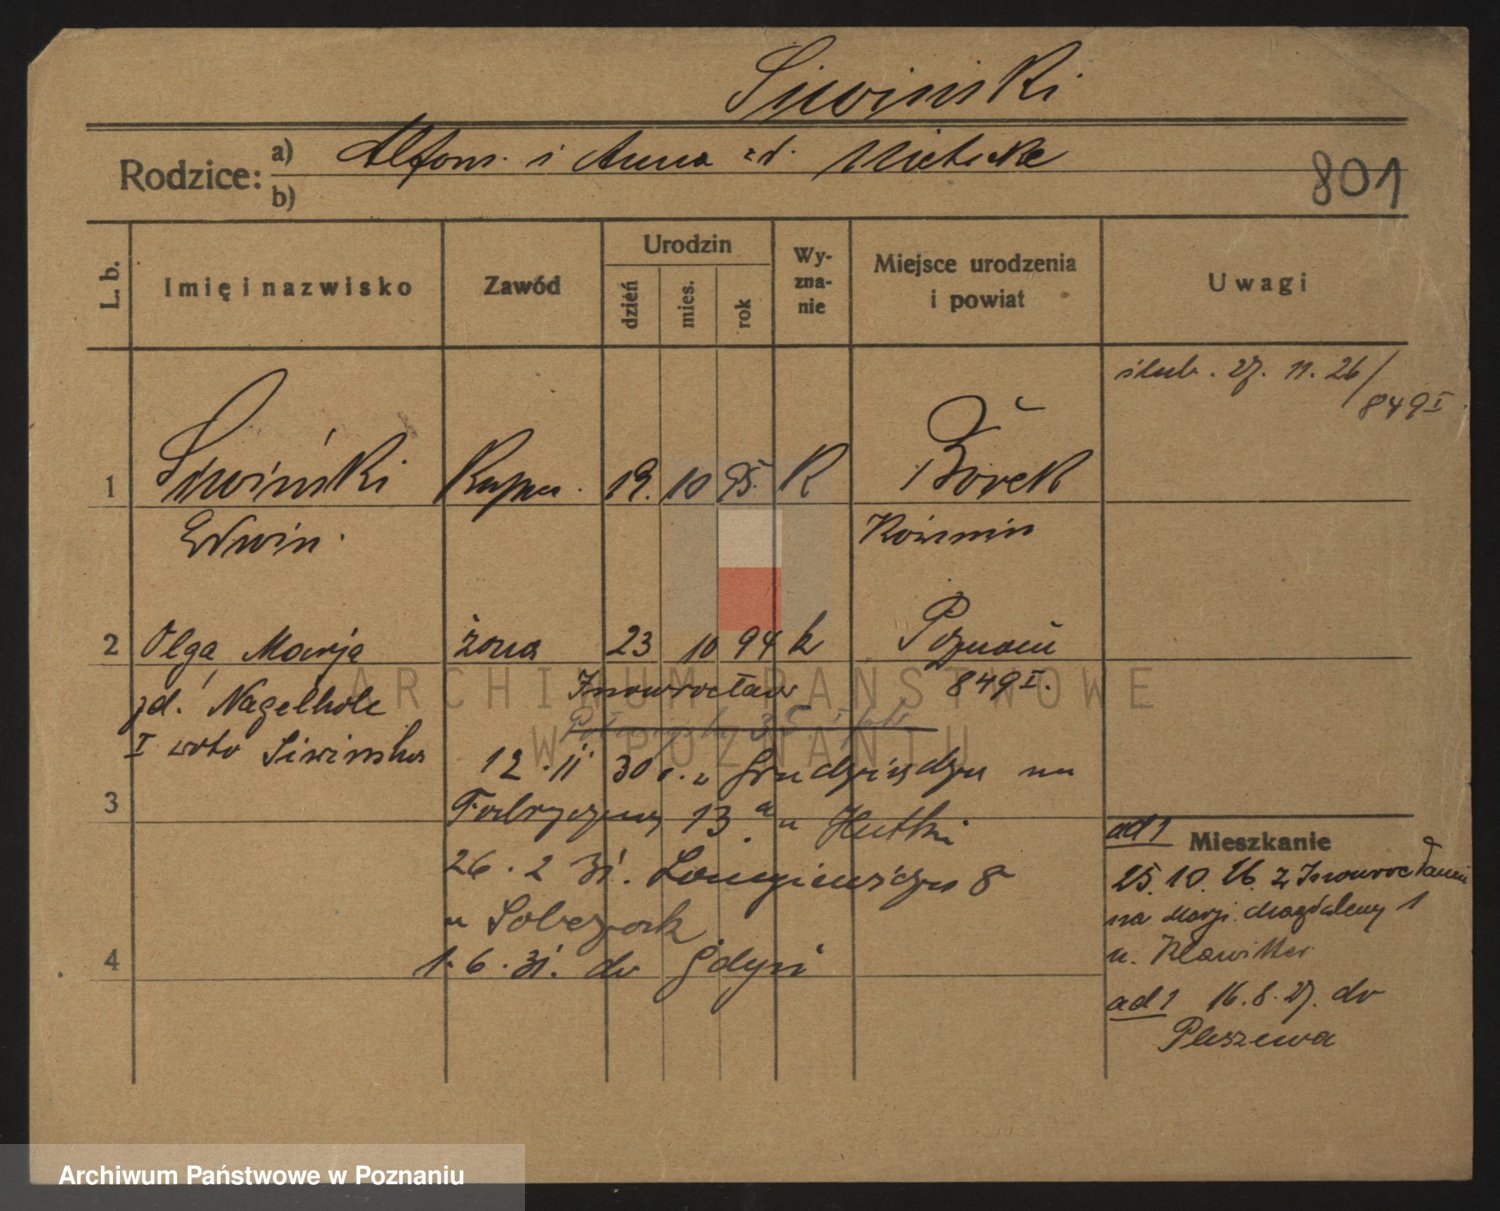 Siwinski
Rodzice: a) Alfons. i Anna zd.
b)
801
L. b.
Imię i nazwisko
Zawód
Urodzin
dzień
mies.
rok
Wy-
zna-
nie
Miejsce urodzenia
i powiat
Uwagi
ślub. 27. 11. 26/
849 I
1 Siwiński Kupiec. 19. 10 95. R Borek
Edwin. Koźmin
2 Olga Marja żona 23 10 94 k Poznań
849 I.
zd. Nagelholc Inowrocław
I voto Siwińska
12. 11 30 r. z Grudziądza na
3 Fabryczną 13a u Hutki
26. 2 31. Langiewicza 8
u Sobczak
4 1. 6. 31. do Gdyni
ad 1 Mieszkanie
25. 10. 26. z Inowrocławia
na Marji Magdaleny 1
u. Klawitter
ad 1 16. 8. 27. do
Pleszewa
ARCHIWUM PAŃSTWOWE
W POZNANIU
Archiwum Państwowe w Poznaniu